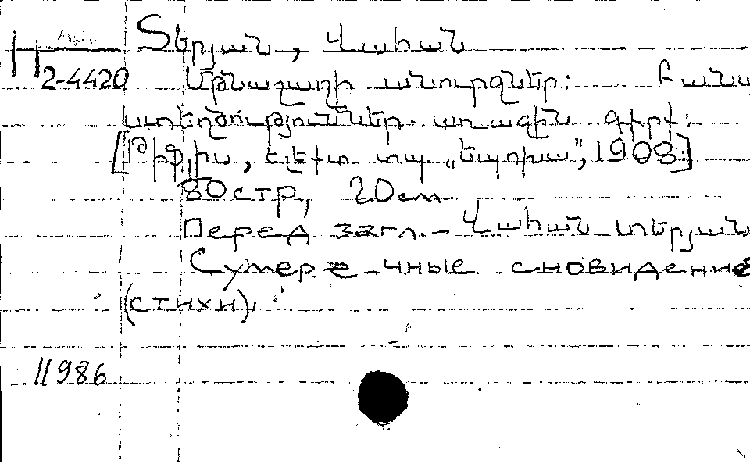 Տերյան, Վահան
2-4420 Մթնշաղի անուրջներ: Բանա
ստեղծություններ. առաջին գիրք.
[Թիֆլիս, էլեքտ. տպ. „Էպոխա”, 1908.]
80 стр, 20 см
Перед загл. - Վահան Տերյան
Сумеречные сновидение
(стихи).
11986